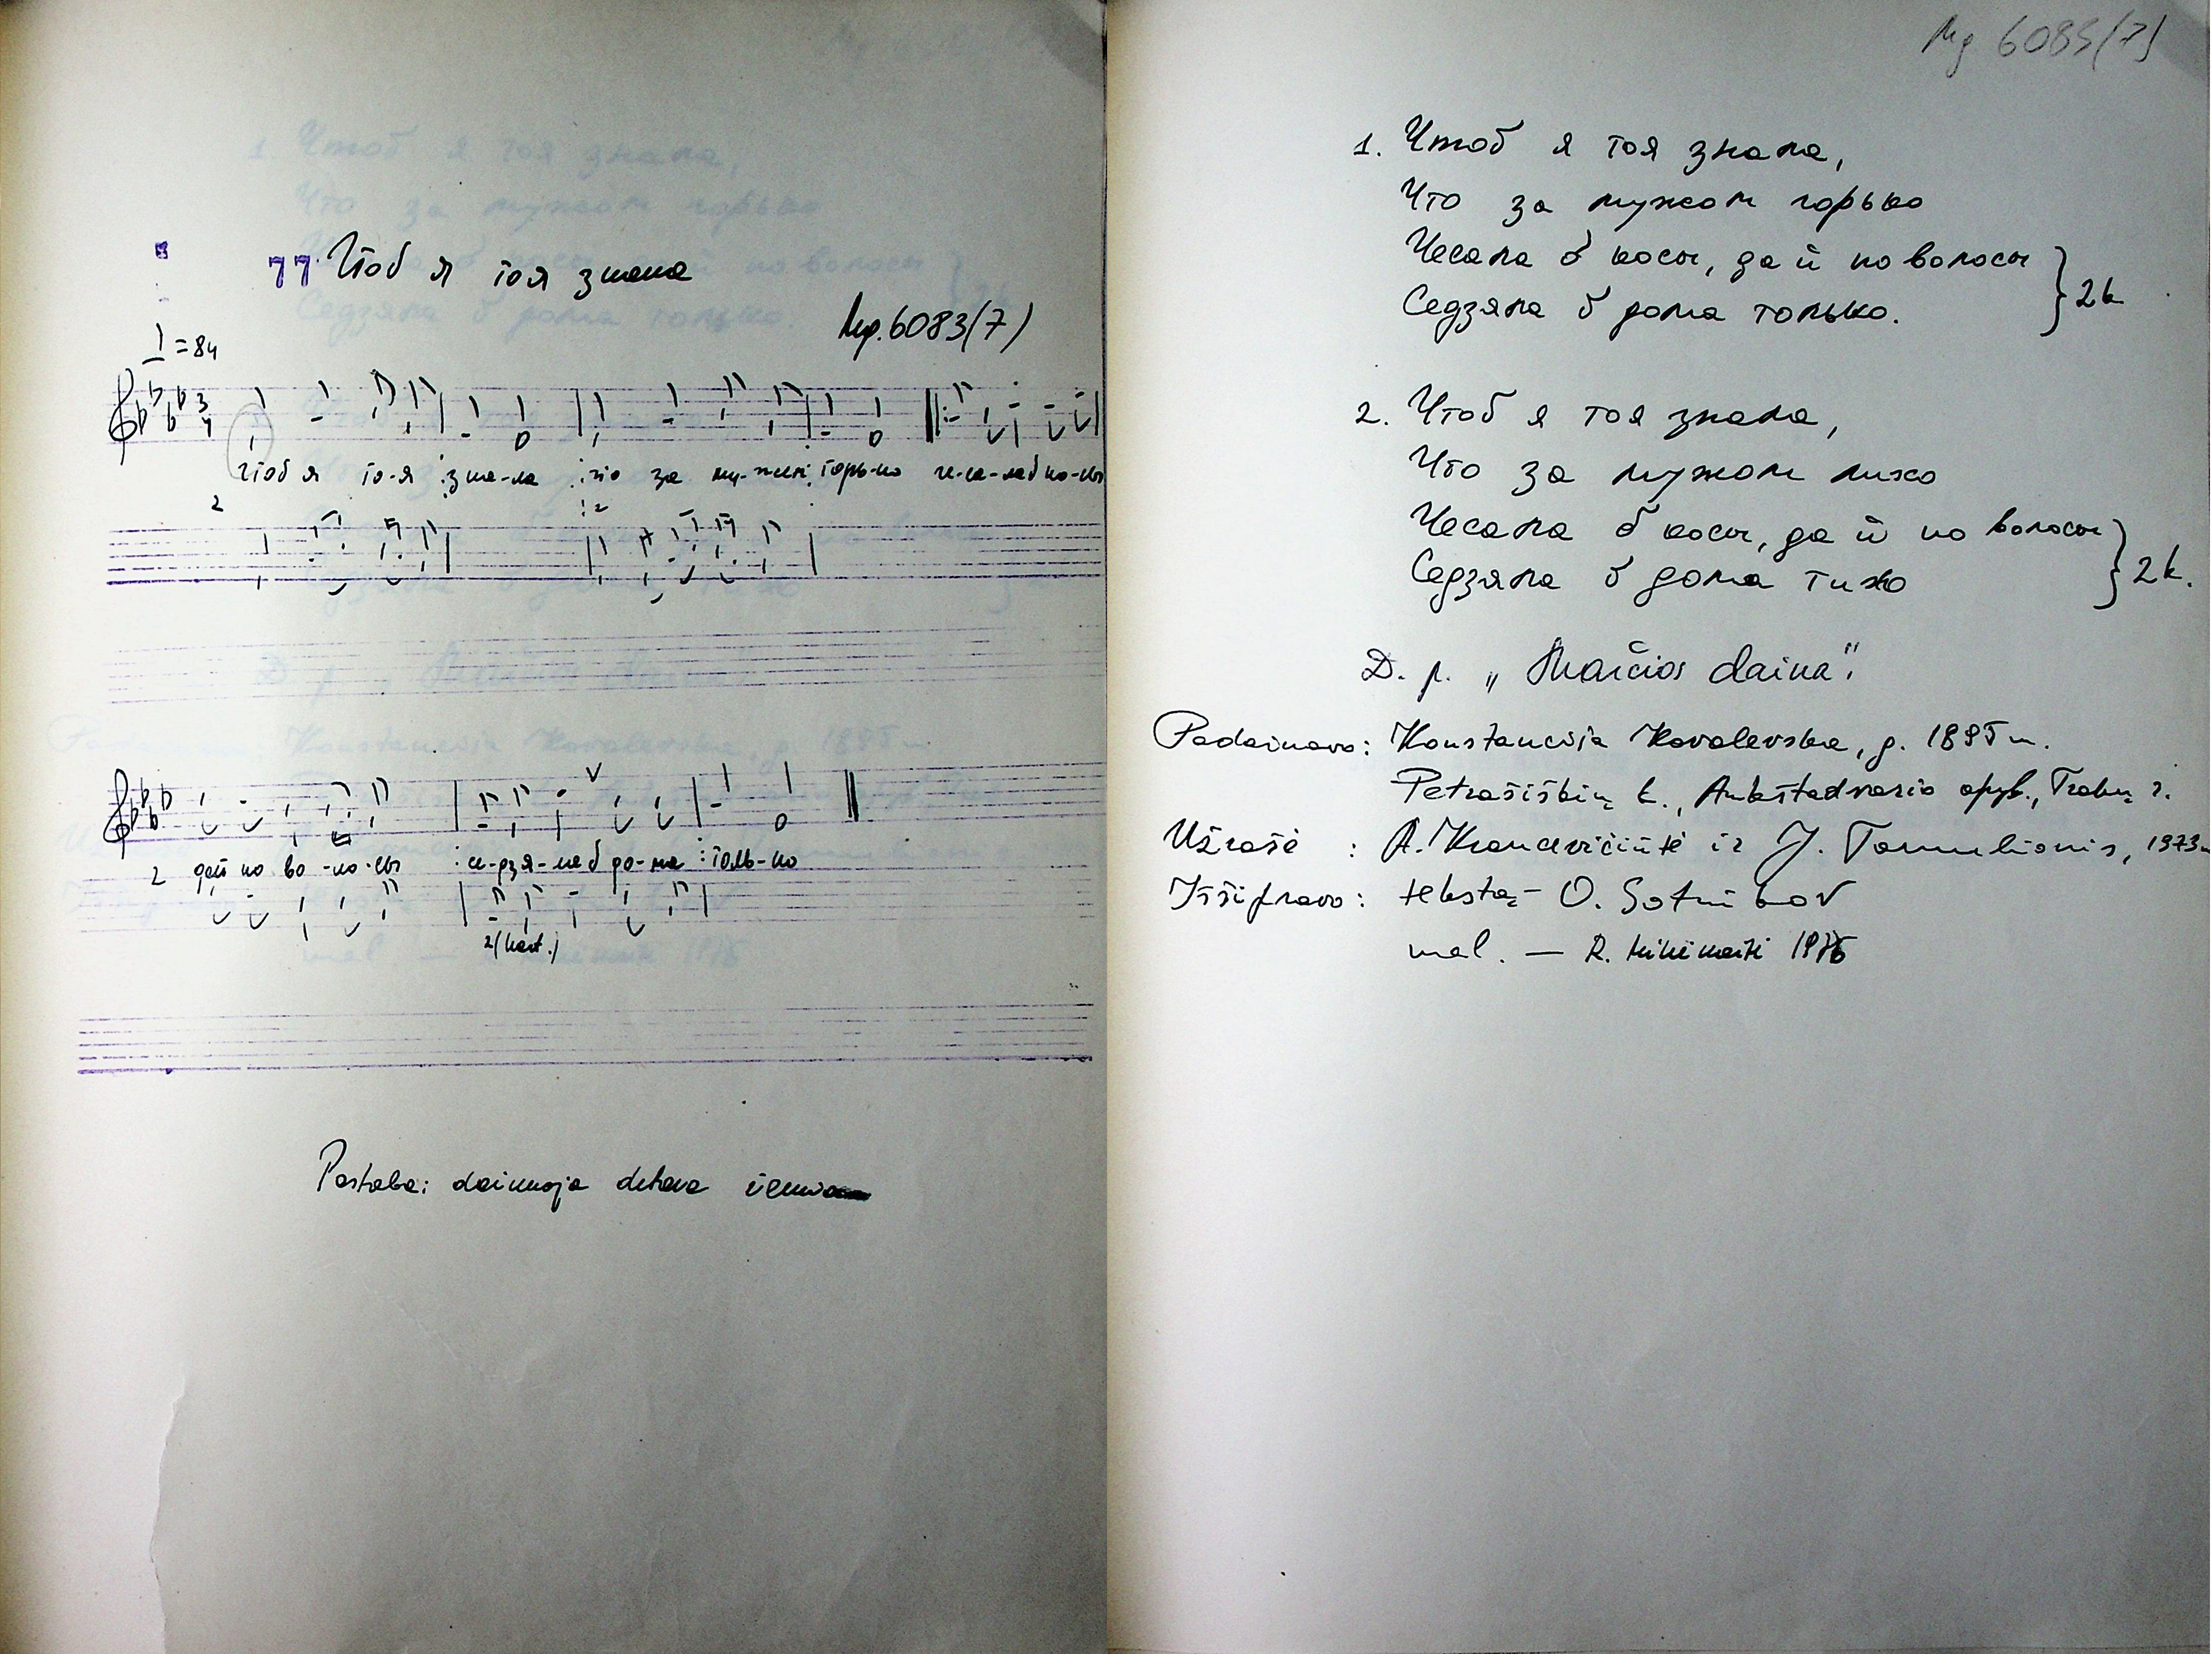 77. Чтоб я тоя знала
Mg. 6083(7)
= 84
3
4
Чтоб я то-я зна-ла что за му-жем горь-ко че-са-ла б ко-сы
2
2
2 дай по во-ло-сы се-дзя-ла б до-ма толь-ко
2(kart.)
Pastaba: dainuoja dubliu
Mg 6083(7)
1. Чтоб я тоя знала,
Что за мужом горько
Чесала б косы, да й по волосы
Седзяла б дома только. } 2k
2. Чтоб я тоя знала,
Что за мужом лихо
Чесала б косы, да й по волосы
Седзяла б дома тихо } 2k.
D. p. „Marčios daina".
Padainavo: Konstancija Kovalevska, g. 1895 m.
Petrašiškių k., Aukštadvario apyl., Trakų r.
Užrašė : A. Krancevičiūtė ir J. Tamulionis, 1973 m
Iššifravo: tekstą – O. Sotnikov
mel. — R. 1976